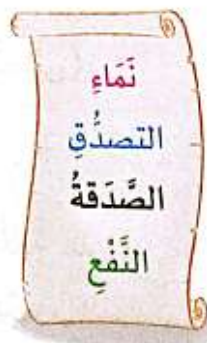 نَمَاءِ
التصدُّقِ
الصَّدَقةُ
النَّفْعِ